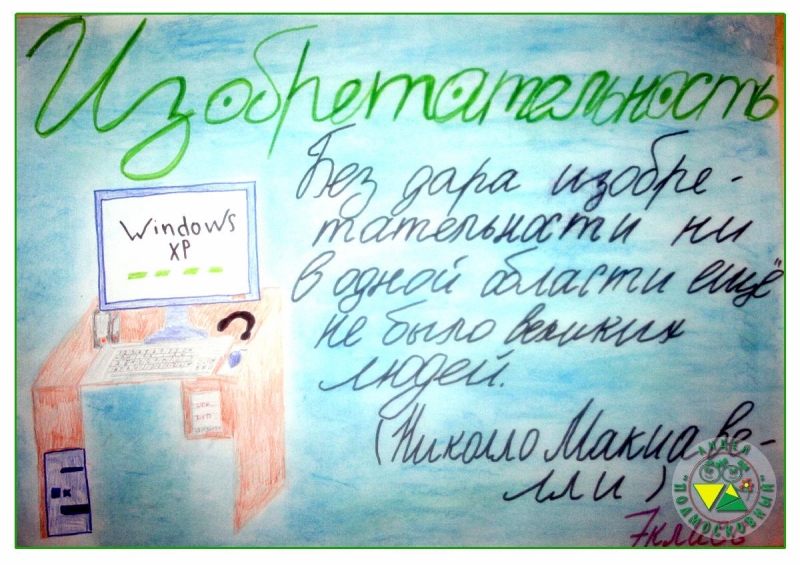 Изобретательность
Без дара изобре-
тательности ни
в одной области ещё
не было великих
людей.
(Никколо Макиаве-
лли)
7класс
Windows
XP
ЛИЦЕЙ
"ПОДМОСКОВНЫЙ"